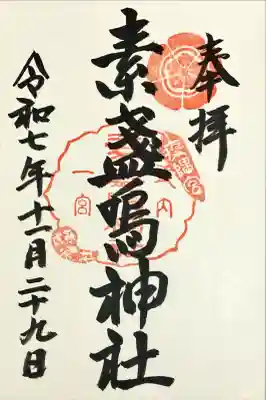 奉拝
素盞嗚神社
令和七年十一月二十九日